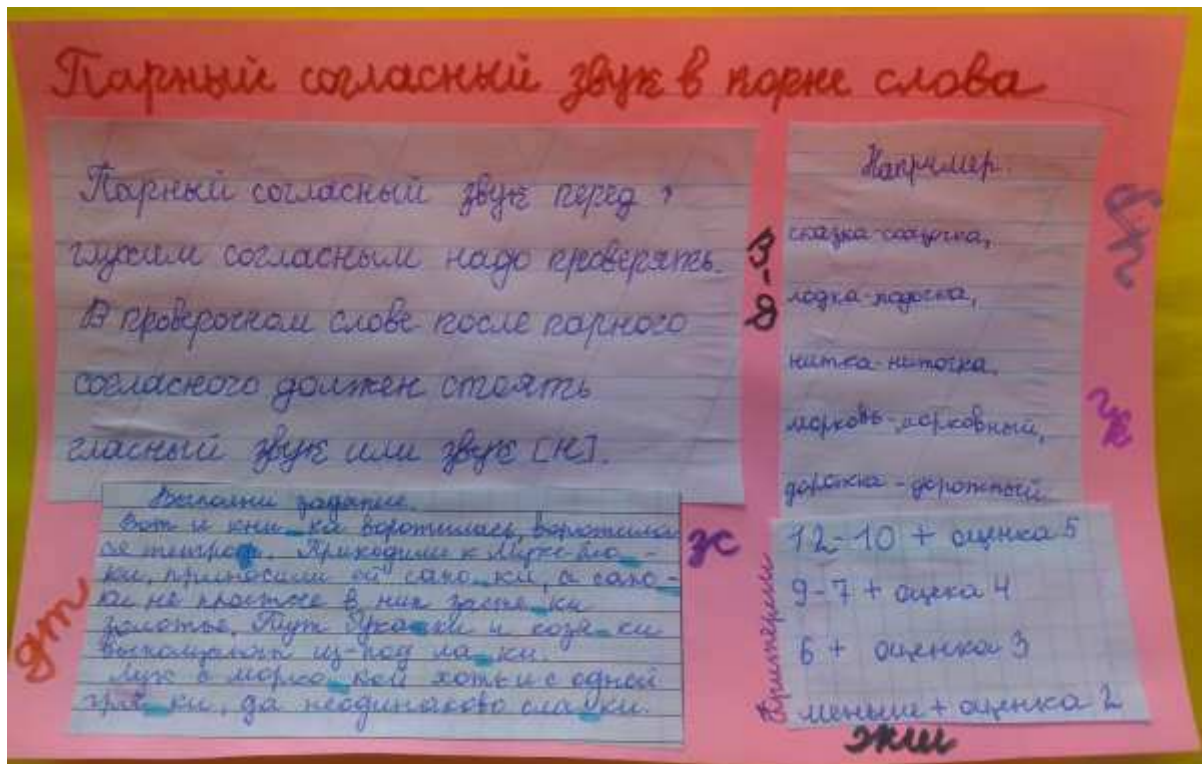 Парный согласный звук в корне слова
Парный согласный звук перед
глухим согласным надо проверять.
В проверочном слове после парного
согласного должен стоять
гласный звук или звук [н].
Например:
сказка-сказочка,
лодка-лодочка,
нитка-ниточка,
морковь-морковный,
дорожка-дорожный
Выполни задание.
Вот и кни_ка воротилась, воротила
ся тетра_. Приходили к Мухе бло_-
ки, приносили ей сапо_ки, а сапо_-
ки не простые в них засте_ки
золотые. Тут бука_ки и козя_ки
из-под ла_ки.
Лук с морко_кой хоть и с одной
гря_ки, да неодинаково сла_ки.
12-10 + оценка 5
9-7 + оцека 4
6 + оценка 3
меньше + оценка 2
Критерии
бп
в-ф
гк
зс
дт
жш